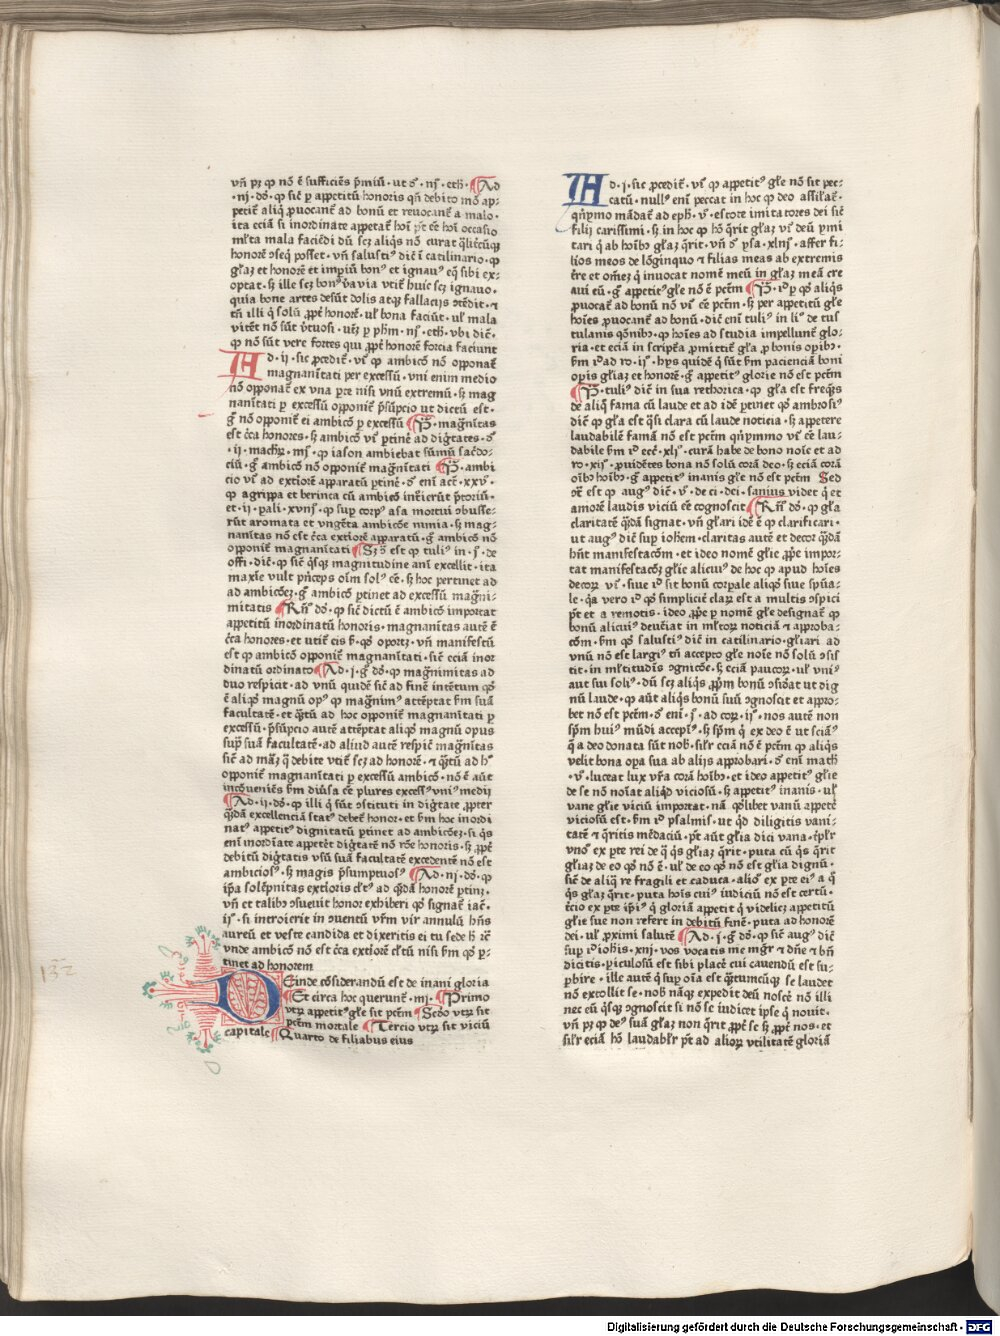 vn̄ pꝫ ꝙ nō ē sufficiēs p̄miū · ut ꝺꝛ · nj · eth · Ad
· nj · dō · ꝙ sic̄ ꝑ appetitū honoris qn̄ debito mō ap⸗
petit̄ aliq̄ ꝓuocant̄ ad bonū et reuocant̄ a malo ·
ita eciā si inordinate appetat̄ hōi pt̄ ēē hōi occasio
ml̄ta mala faciēdi dū scꝫ aliq̄s nō curat q̄litcūqꝫ
honorē ↄseq̄ posset · vn̄ salusti⁹ dic̄ ī catilinario · ꝙ
gl̄aꝫ et honorē et imꝑiū bon⁹ et ignau⁹ eq̄ sibi ex⸗
optat · sꝫ ille scꝫ bon⁹ v̄a via vtit̄ huic scꝫ ignauo ·
quia bone artes desūt dolis atqꝫ fallacijs ↄtēdit · ⁊
tn̄ illi q̄ solū ꝓpt̄ honorē · ul̄ bona faciūt · ul̄ mala
vitēt nō sūt v̄tuosi · utꝫ ꝑ pħm · nj · eth · vbi dic̄ ·
ꝙ nō sūt vere fortes qui ꝓpt̄ honorē forcia faciunt
Ad · ij · sic ꝓcedit̄ · vr̄ ꝙ ambicō nō oppōnat̄
magnanītati per excessū · vni enim medio
nō opponat̄ ex vna ꝑte nisi vnū extremū · sꝫ mag
nanītati ꝑ excessū opponit̄ p̄sūpcio ut dictū est ·
g̊ nō opponit̄ ei ambicō ꝑ excessū P̄ · magn̄itas
est c̄ca honores · sꝫ ambicō vr̄ ꝑtinē ad digtates · ꝺꝛ
· ij · machꝝ · mj · ꝙ iason ambiebat sūmū sac̄do⸗
ciū · g̊ ambicō nō opponit̄ magn̄itati P̄ · ambi
cio vr̄ ad extiorē apparatū ꝑtinē · ꝺꝛ eni act̄ · xxv ·
ꝙ agrippa et berinca cū ambicōe int̄ierūt p̄toriū ·
et · ij · pali · xvnj · ꝙ suꝑ corp⁹ asa mortui ↄbusse⸗
rūt aromata et vngēta ambicōe nimia · sꝫ mag⸗
nanītas nō est c̄ca extiorē apparatū · g̊ ambicō nō
opponit̄ magnanītati Sꝫ ↄ̄ est ꝙ tuli⁹ in · j · de
offi · dic̄ · ꝙ sic̄ q̄sqꝫ magnitudine ani excellit · ita
maxīe vult pn̄ceps oīm sol⁹ ēē · sꝫ hoc pertinet ad
ad ambicōeꝫ · g̊ ambicō ꝑtinet ad excessū magn̄i⸗
mitatis Rn̄ dō · ꝙ sic̄ dictū ē ambicō importat
appetitū inordinatū honoris · magnanitas autē ē
c̄ca honores · et utit̄ eis ꝓ · qꝺ oportꝫ · vn̄ manifestū
est ꝙ ambicō opponit̄ magnanītati · sic̄ eciā inor
dinatū ordinato Ad · j · g̊ dō · ꝙ magn̄imitas ad
duo respicit · ad vnū quidē sic̄ ad finē intētum qꝺ
ē aliqꝺ magnū op⁹ ꝙ magn̄im⁹ attēptat ẜm suā
facultatē · et q̄tū ad hoc opponit̄ magnanītati ꝑ
excessū · p̄sūpcio autē attēptat aliqꝺ magnū opus
supra suā facultatē · ad aliud autē respic̄ magn̄itas
sic̄ ad maꝫ q̄ debite vtit̄ scꝫ ad honorē · ⁊ q̄tū ad h⁹
opponit̄ magnanītati ꝑ excessū ambicō · nō ē aūt
incōueniēs ẜm diūsa ēē plures excess⁹ vni⁹ medij
Ad · ij · dō · ꝙ illi q̄ sūt ↄstituti in digtate ꝓpter
q̄dā excellenciā stat⁹ debet̄ honor · et ẜm hoc inordi
nat⁹ appetit⁹ dignitatū ꝑtinet ad ambicōeꝫ · si q̄s
eni inordīate appetēt digtatē nō rōe honoris · sꝫ ꝓpt̄
debitū digtatis vsū suā facultatē excedentē nō est
ambicios⁹ · sꝫ magis p̄sumptuos⁹ Ad · nj · dō · ꝙ
ip̄a solēpnitas extioris cl̄t⁹ ad q̄dā honorē ꝑtinꝫ ·
vn̄ et talib⁹ ↄsueuit honor exhiberi qꝺ signat̄ iac̄ ·
ij · si introierit in ↄuentū vr̄m vir annulū hn̄s
aureū et veste candida et dixeritis ei tu sede h̄ ⁊c̄
vnde ambicō nō est c̄ca extiorē cl̄tū nisi ẜm qꝺ ꝑ⸗
tinet ad honorem
Deinde cōsiderandū est de inani gloria
Et circa hoc querunt̄ · mj · Primo
vtꝝ appetit⁹ gl̄e sit pctm̄ Scdō vtꝝ sit
pctm̄ mortale Tercio vtꝝ sit viciū
capitale Quarto de filiabus eius
132
Ad · j · sic ꝓcedit̄ · vr̄ ꝙ appetit⁹ gl̄e nō sit pec⸗
catū · null⁹ eni peccat in hoc ꝙ deo assilat̄ ·
qn̄ymo mādat̄ ad eph · v · estote imitatores dei sic̄
filij carissimi · sꝫ in hoc ꝙ hō q̄rit gl̄aꝫ vr̄ deū ymi
tari q̄ ab hoīb⁹ gl̄aꝫ q̄rit · vn̄ ꝺꝛ ysa · xlnj · affer fi⸗
lios meos de lōginquo ⁊ filias meas ab extremis
t̄re et om̄eꝫ q̄ inuocat nomē meū in gl̄aꝫ meā cre
aui eū · g̊ appetit⁹ gl̄e nō ē pctm̄ P̄ · iꝺ ꝑ qꝺ aliq̄s
ꝓuocat̄ ad bonū nō vr̄ ēē pctm̄ · sꝫ per appetitū gl̄e
hoīes ꝓuocant̄ ad bonū · dic̄ eni tuli⁹ in li⁰ de tus
tulanis qōnib⁹ · ꝙ hoīes ad studia impellunt̄ glo⸗
ria · et eciā in script̄a ꝓmittit̄ gl̄a ꝓ bonis opib⁹ ·
ẜm iꝺ ad ro · ij · hys quidē q̄ sūt ẜm pacienciā boni
opis gl̄iaꝫ et honorē · g̊ appetit⁹ glorie nō est pctm̄
P̄ · tuli⁹ dic̄ in sua rethorica · ꝙ gl̄a est freq̄s
de aliq̄ fama cū laude et ad idē ꝑtinet qꝺ ambrosi⁹
dic̄ ꝙ gl̄a est q̄si clara cū laude noticia · sꝫ appetere
laudabilē famā nō est pctm̄ qn̄ymmo vr̄ ēē lau⸗
dabile ẜm iꝺ ecc̄i · xlj · curā habe de bono noīe et ad
ro · xij · ꝓuidētes bona nō solū corā deo · sꝫ eciā corā
oīb⁹ hoīb⁹ · g̊ appetit⁹ inanis gl̄e nō est pctm̄ Sed
ↄ̄ est ꝙ aug⁹ dic̄ · v · de ci · dei · sanius videt q̄ et
amorē laudis viciū ēē cognoscit Rn̄ dō · ꝙ gl̄a
claritatē q̄dā signat · vn̄ gl̄ari idē ē ꝙ clarificari ·
ut aug⁹ dic̄ suꝑ iohem · claritas autē et decor q̄dā
hn̄t manifestacōm · et ideo nomē gl̄ie ꝓpe impor⸗
tat manifestacōꝫ gl̄ie alicui⁹ de hoc ꝙ apud hoīes
decorꝝ vr̄ · siue iꝺ sit bonū corꝑale aliqꝺ siue sp̄ua⸗
le · q̄a vero iꝺ qꝺ simpliciter clarꝫ est a multis ↄspici
pt̄ et a remotis · ideo ꝓpe ꝑ nomē gl̄e designat̄ ꝙ
bonū alicui⁹ deueniat in ml̄torꝝ noticiā ⁊ approba⸗
cōm · ẜm qꝺ salusti⁹ dic̄ in catilinario · gl̄iari ad
vnū nō est largi⁹ tn̄ accepto gl̄e noīe nō solū ↄsis
tit · in ml̄titudīs ↄgnicōe · sꝫ eciā paucorꝝ · ul̄ vni⁹
aut sui soli⁹ · dū scꝫ aliq̄s ꝓpm̄ bonū ↄsiderat ut dig
nū laude · ꝙ aūt aliq̄s bonū suū ↄgnoscit et appro⸗
bet nō est pctm̄ · ꝺꝛ eni · j · ad corꝝ · ij · nos autē non
spm̄ hui⁹ mūdi accepim⁹ · sꝫ spm̄ q̄ ex deo ē ut sciam⁹
q̄ a deo donata sūt nob̄ · sil̄r eciā nō ē pctm̄ ꝙ aliq̄s
velit bona oꝑa sua ab alijs approbari · ꝺꝛ eni math
· v · luceat lux vr̄a corā hoīb⁹ · et ideo appetit⁹ gl̄ie
de se nō noīat aliqꝺ viciosū · sꝫ appetit⁹ inanis · ul̄
vane gl̄ie viciū importat · nā qꝺlibet vanū appetē
viciosū est · ẜm iꝺ psalmis · ut qꝺ diligitis vani⸗
tatē ⁊ q̄ritis mēdaciū · pt̄ aūt gl̄ia dici vana · tpl̄r
vno⁰ ex ꝑte rei de q̄ q̄s gl̄iaꝫ q̄rit · puta cū q̄s q̄rit
gl̄iaꝫ de eo qꝺ nō ē · ul̄ de eo qꝺ nō est gl̄ia dignū ·
sic̄ de aliq̄ re fragili et caduca · alio⁰ ex ꝑte ei⁹ a q̄
q̄s gl̄aꝫ q̄rit · puta hoīs cui⁹ iudiciū nō est certū ·
t̄cio ex ꝑte ip̄i⁹ q̄ gloriā appetit q̄ videlicꝫ appetitū
gl̄ie sue non refert in debitū finē · puta ad honorē
dei · ul̄ ꝓximi salutē Ad · j · g̊ dō · ꝙ sic̄ aug⁹ dic̄
suꝑ iꝺ iohis · xnj · vos vocatis me mg̊r ⁊ dn̄e ⁊ bn̄
dicitis · ꝑiculosū est sibi placē cui cauendū est su⸗
ꝑbire · ille autē q̄ suꝑ oīa est q̄tumcūqꝫ se laudet
nō extollit se · nob̄ nāqꝫ expedit deū noscē nō illi
nec eū q̄sqꝫ ↄgnoscit si nō se indicet ipse q̄ nouit ·
vn̄ pꝫ ꝙ de⁹ suā gl̄aꝫ non q̄rit ꝓpt̄ se sꝫ ꝓpt̄ nos · et
sil̄r eciā hō laudabl̄r pt̄ ad aliorꝝ vtilitatē gloriā
Digitalisierung gefördert durch die Deutsche Forschungsgemeinschaft - DFG